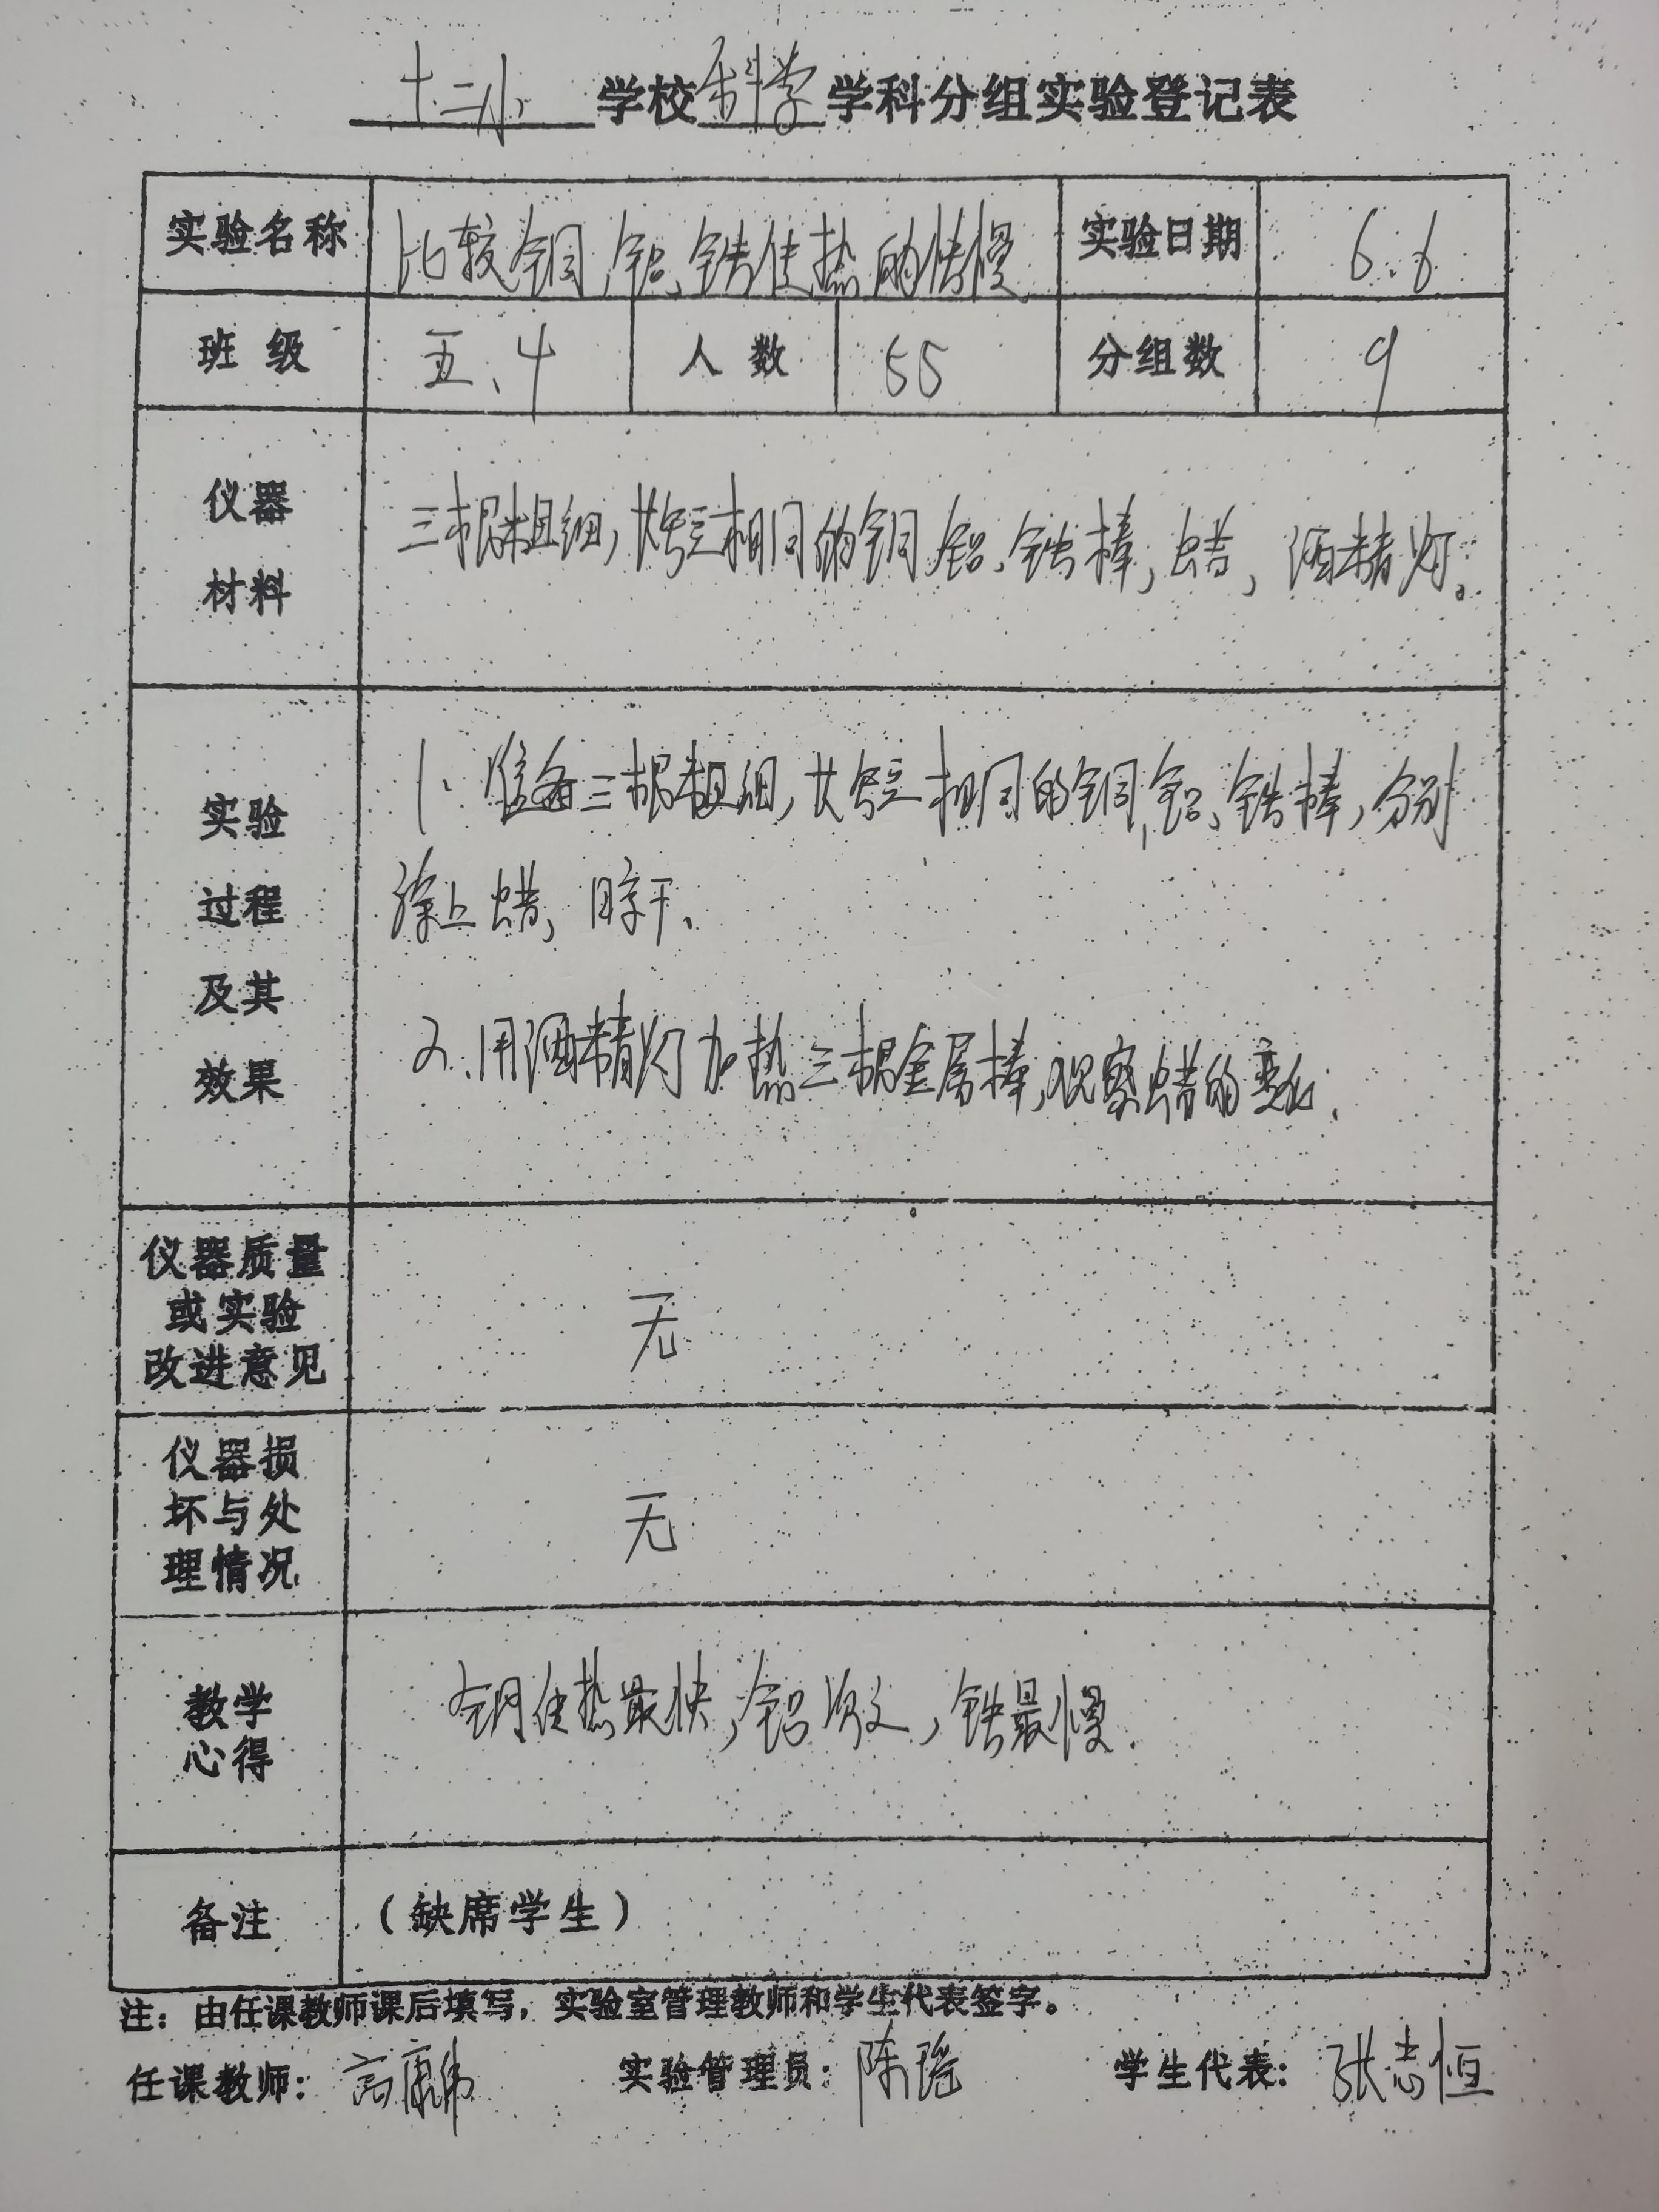 十二小 学校 科学 学科分组实验登记表
实验名称 比较铜、铝、铁传热的快慢 实验日期 6.6
班级 五、4 人数 55 分组数 9
仪器
材料
三根粗细,长短相同的铜、铝、铁棒,蜡,酒精灯。
实验
过程
及其
效果
1、准备三根粗细,长短相同的铜、铝、铁棒,分别
涂上蜡,晾干、
2、用酒精灯加热三根金属棒,观察蜡的变化.
仪器质量
或实验
改进意见
无
仪器损
坏与处
理情况
无
教学
心得
铜传热最快,铝次之,铁最慢.
备注 (缺席学生)
注:由任课教师课后填写,实验室管理教师和学生代表签字。
任课教师:高康伟 实验管理员:陈瑶 学生代表:张志恒